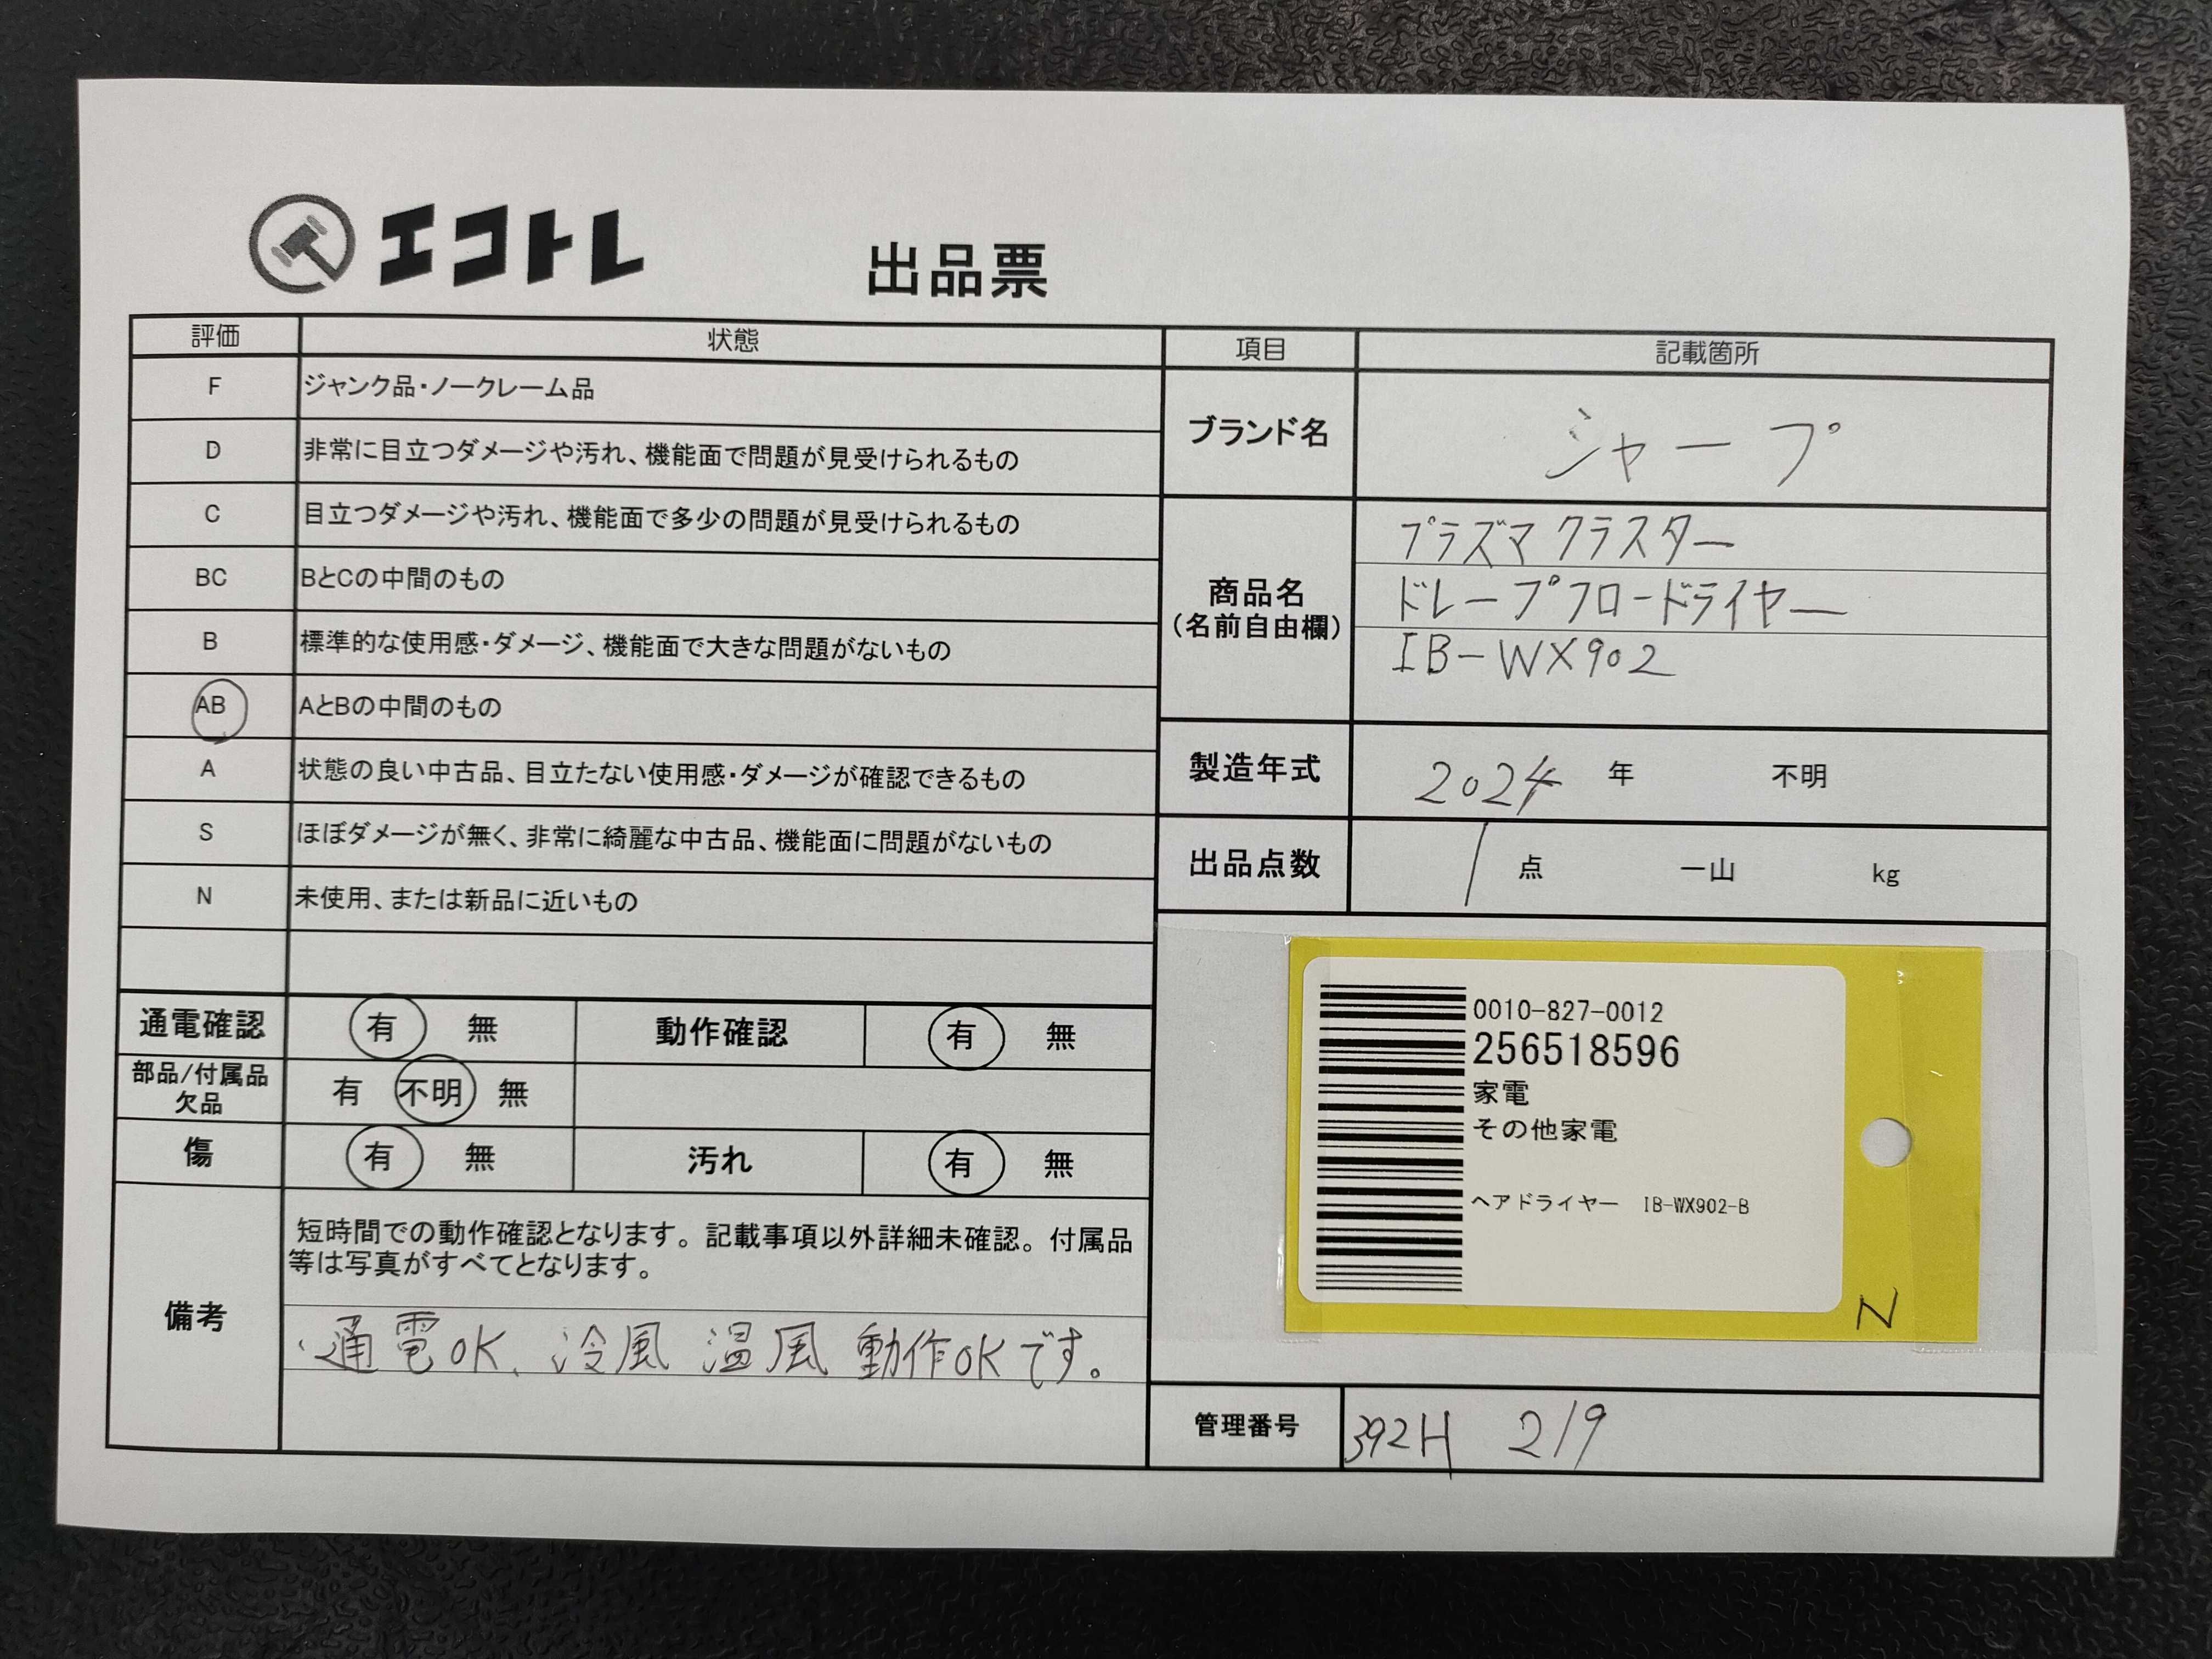 エコトレ
出品票
評価 状態
F ジャンク品・ノークレーム品
D 非常に目立つダメージや汚れ、機能面で問題が見受けられるもの
C 目立つダメージや汚れ、機能面で多少の問題が見受けられるもの
BC BとCの中間のもの
B 標準的な使用感・ダメージ、機能面で大きな問題がないもの
AB AとBの中間のもの
A 状態の良い中古品、目立たない使用感・ダメージが確認できるもの
S ほぼダメージが無く、非常に綺麗な中古品、機能面に問題がないもの
N 未使用、または新品に近いもの
通電確認 有 無 動作確認 有 無
部品/付属品
欠品 有 不明 無
傷 有 無 汚れ 有 無
備考
短時間での動作確認となります。記載事項以外詳細未確認。付属品
等は写真がすべてとなります。
・通電OK、冷風 温風 動作OKです。
項目 記載箇所
ブランド名 シャープ
商品名
(名前自由欄)
プラズマクラスター
ドレープフロードライヤー
IB-WX902
製造年式 2024 年 不明
出品点数 1 点 一山 kg
0010-827-0012
256518596
家電
その他家電
ヘアドライヤー IB-WX902-B
N
管理番号 392H 219